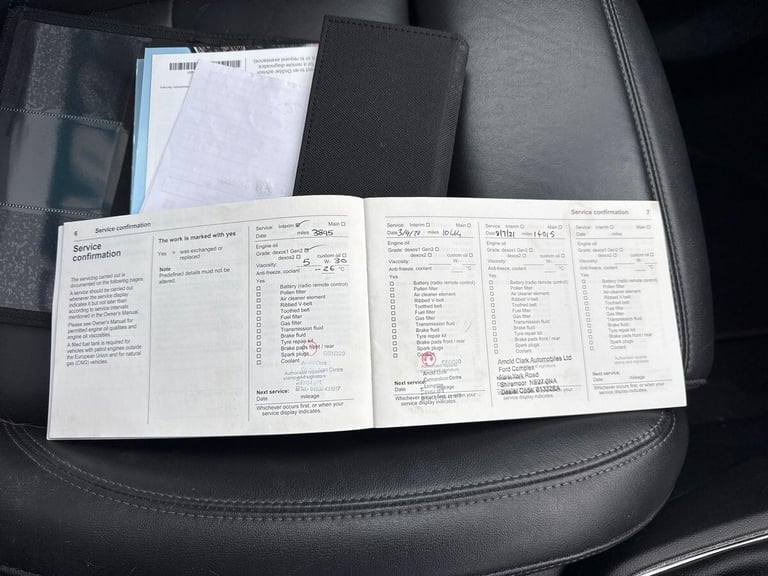 6 Service confirmation
Service
confirmation
The servicing carried out is
documented on the following pages.
A service should be carried out
whenever the service display
indicates it but not later than
according to service intervals
mentioned in the Owner's Manual.
Please see Owner's Manual for
permitted engine oil qualities and
engine oil viscosities.
A filled fuel tank is required for
vehicles with petrol engines outside
the European Union and for natural
gas (CNG) vehicles.
The work is marked with yes
Yes = was exchanged or
replaced
Note
Predefined details must not be
altered.
Service: Interim Main
Date miles 3895
Engine oil
Grade: dexos1 Gen2
dexos2 custom oil
Viscosity: 5 W- 30
Anti-freeze, coolant -26 °C
Yes
Battery (radio remote control)
Pollen filter
Air cleaner element
Ribbed V-belt
Toothed belt
Fuel filter
Gas filter
Transmission fluid
Brake fluid
Tyre repair kit
Brake pads front / rear
Spark plugs
Coolant
Authorised repairer
stamp and signature
Next service:
Date mileage
Whichever occurs first, or when your
service display indicates.
Service: Interim Main
Date miles
Engine oil
Grade: dexos1 Gen2
dexos2 custom oil
Viscosity: W-
Anti-freeze, coolant °C
Yes
Battery (radio remote control)
Pollen filter
Air cleaner element
Ribbed V-belt
Toothed belt
Fuel filter
Gas filter
Transmission fluid
Brake fluid
Tyre repair kit
Brake pads front / rear
Spark plugs
Arnold Clark
Next service:
Date mileage
Whichever occurs first, or when your
service display indicates.
Service confirmation 7
Service: Interim Main
Date miles
Engine oil
Grade: dexos1 Gen2
dexos2 custom oil
Viscosity: W-
Anti-freeze, coolant °C
Yes
Battery (radio remote control)
Pollen filter
Air cleaner element
Ribbed V-belt
Toothed belt
Fuel filter
Gas filter
Transmission fluid
Brake fluid
Tyre repair kit
Brake pads front / rear
Spark plugs
Coolant
Arnold Clark Automobiles Ltd
Ford Complex
New York Road
Shiremoor NE27 0NA
Dealer Code
Date mileage
Whichever occurs first, or when your
service display indicates.
Service: Interim Main
Date miles
Engine oil
Grade: dexos1 Gen2
dexos2 custom oil
Viscosity: W-
Anti-freeze, coolant °C
Yes
Battery (radio remote control)
Pollen filter
Air cleaner element
Ribbed V-belt
Toothed belt
Fuel filter
Gas filter
Transmission fluid
Brake fluid
Tyre repair kit
Brake pads front / rear
Spark plugs
Coolant
Authorised repairer
stamp and signature
Next service:
Date mileage
Whichever occurs first, or when your
service display indicates.